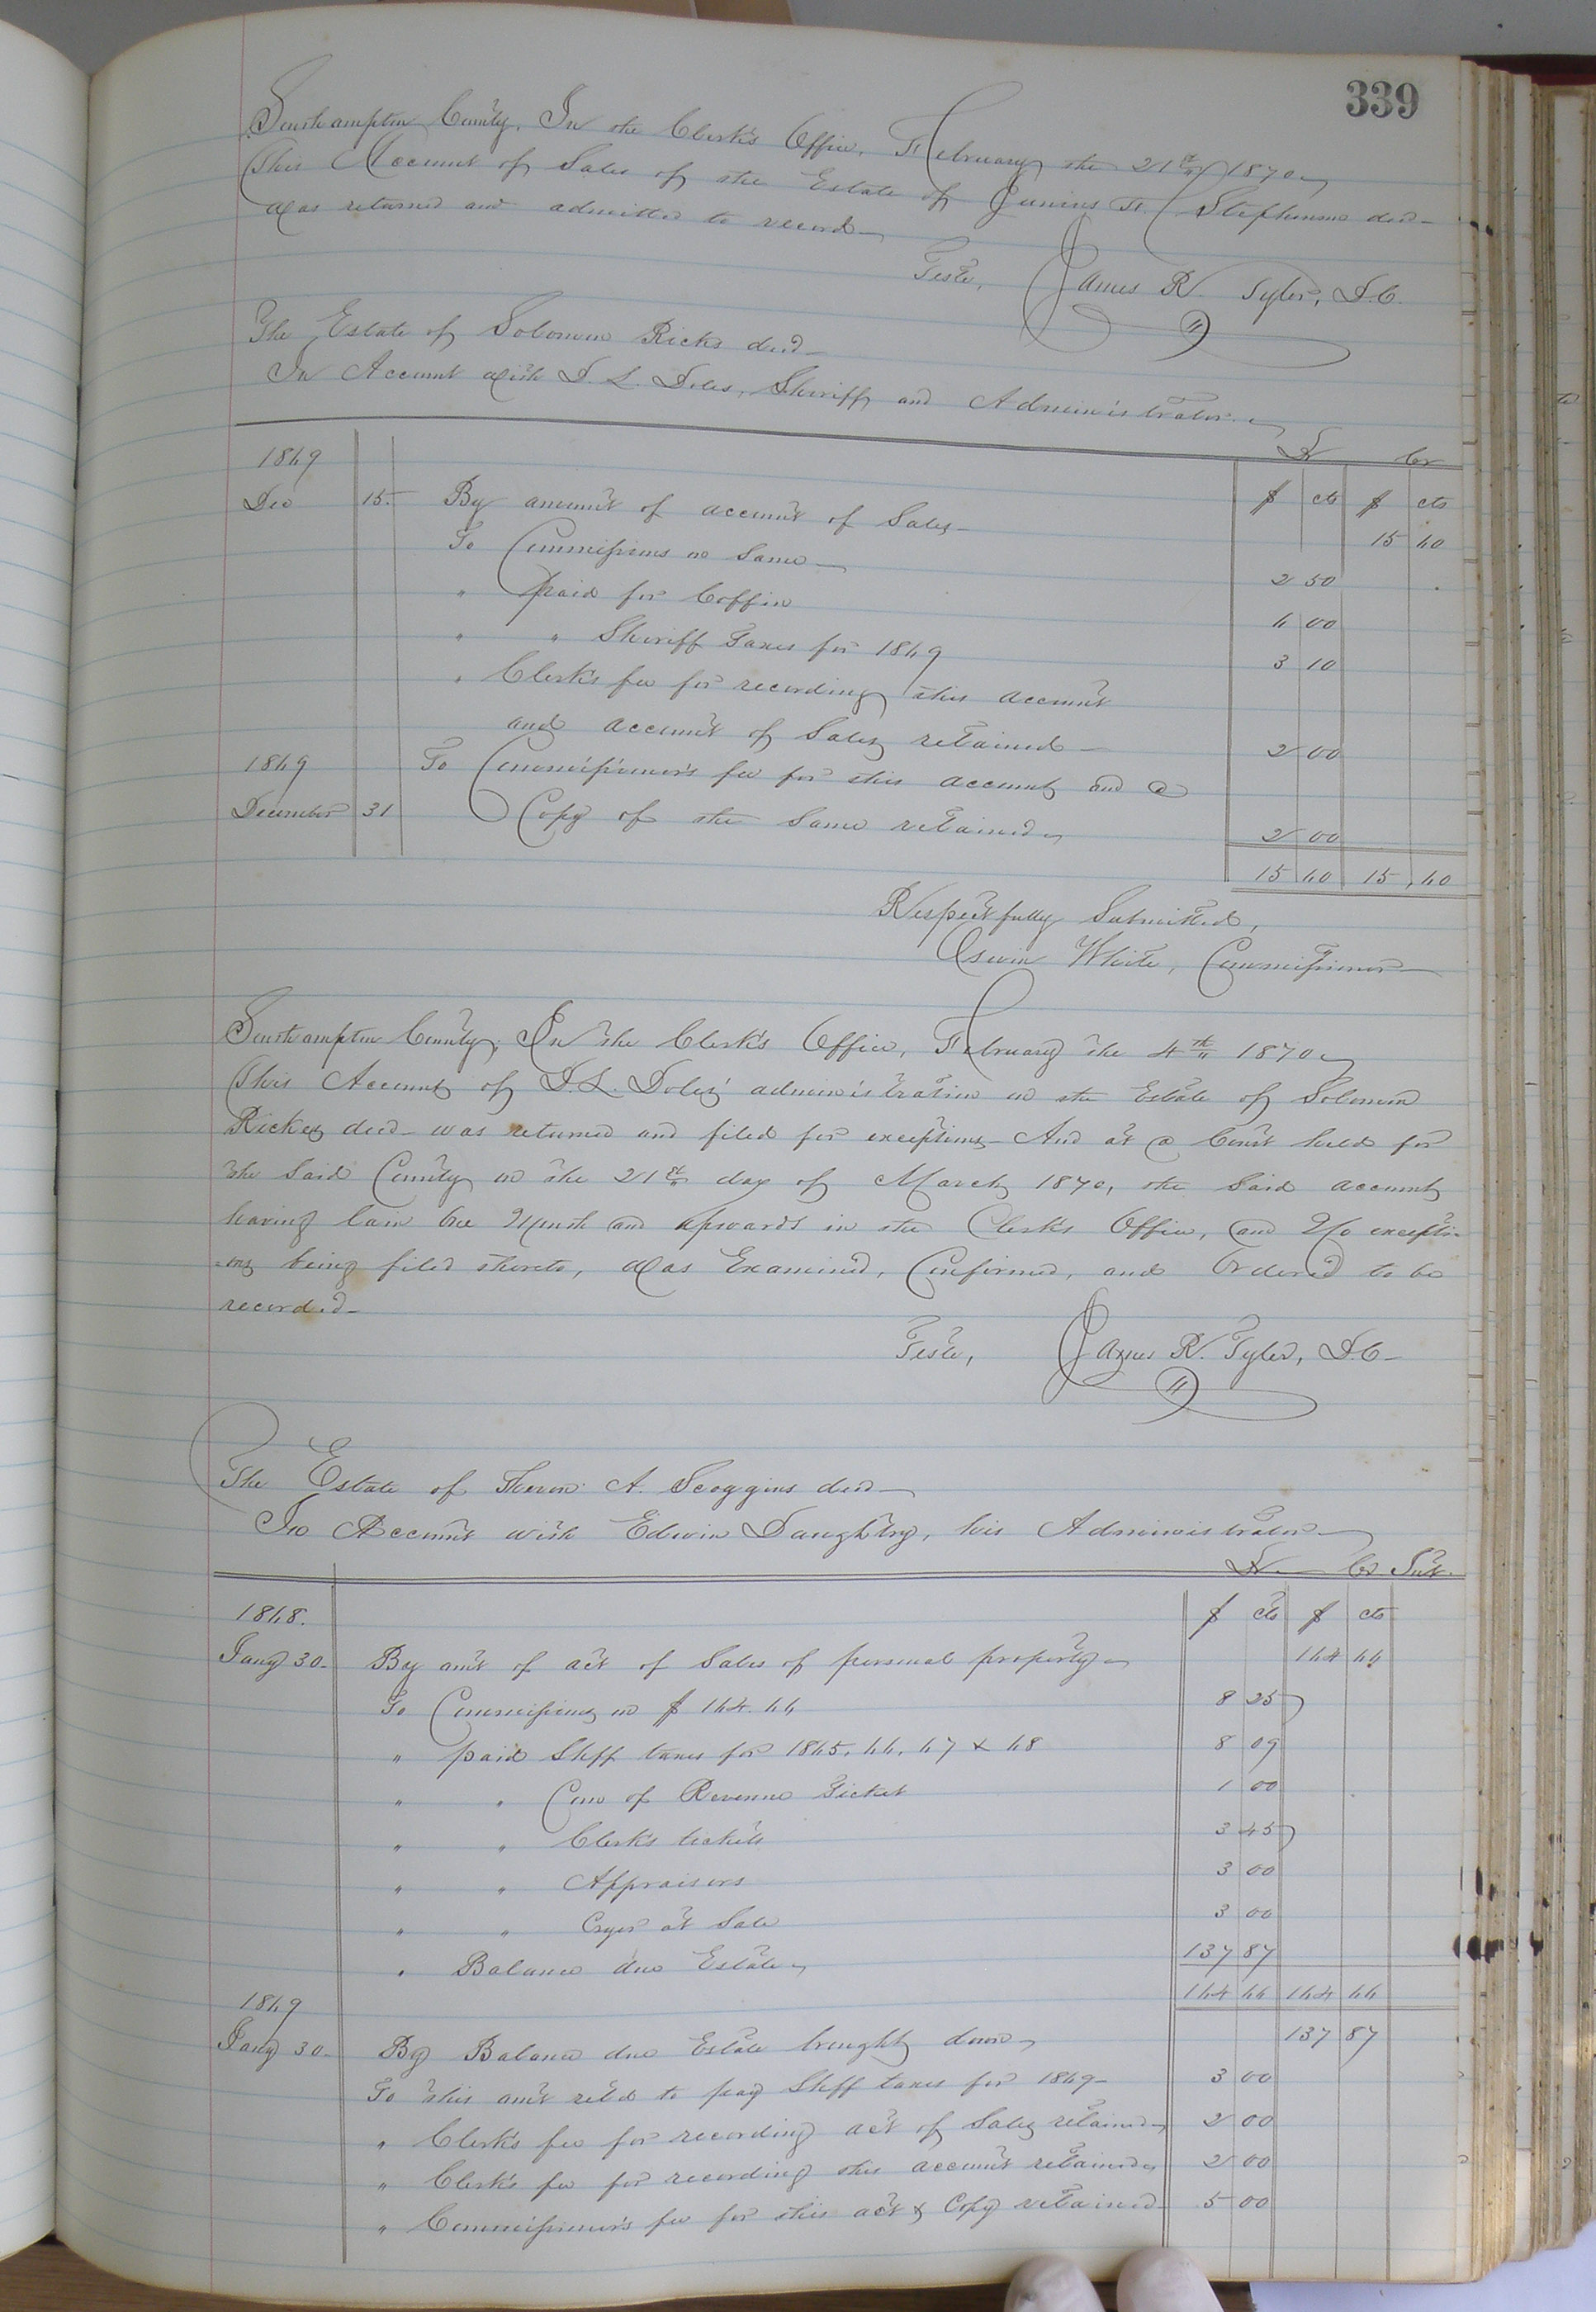 339
Southampton County, In the Clerk's Office, February the 21st 1870
This Account of Sales of the Estate of Junius F. Stephenson decd
was returned and admitted to record
Teste, James R. Tyler, D.C.
The Estate of Solomon Ricks decd
In Account with D. L. Doles, Sheriff and Administrator
Dr Cr
1869 $ cts $ cts
Dec 15 By amount of account of Sales 15 60
To Commissions on Same 2 50
" paid for Coffin 6 00
" " Sheriff Taxes for 1869 3 10
" Clerk's fee for recording this account
and account of Sales retained 2 00
1869 To Commissioner's fee for this account and a
December 31 Copy of the Same retained 2 00
15 60 15,60
Respectfully Submitted,
White, Commissioner
Southampton County, In the Clerk's Office, February the 4th 1870
This Account of D. L. Doles' administration on the Estate of Solomon
Ricks decd was returned and filed for exceptions And at a Court held for
the Said County on the 21st day of March 1870, the Said account
having lain One Month and upwards in the Clerk's Office, and No excepti-
-ons being filed thereto, was Examined, Confirmed, and Ordered to be
recorded
Teste, James R. Tyler, D.C.
The Estate of Theron A. Scoggins decd
In Account with Edwin Daughtry, his Administrator
Dr. Cr Int.
1868. $ cts $ cts
Jany 30 By amt of act of Sales of personal property 164 66
To Commissions on $ 164.66 8 25
" paid Shff taxes for 1865, 66, 67 & 68 8 09
" " Com of Revenue Ticket 1 00
" " Clerk's tickets 3 45
" " Appraisers 3 00
" " Cryer at Sale 3 00
" Balance due Estate 137 87
164 66 164 66
1869
Jany 30 By Balance due Estate brought down 137 87
To this amt ret'd to pay Shff taxes for 1869 3 00
" Clerk's fee for recording act of Sales retained 2 00
" Clerk's fee for recording this account retained 2 00
" Commissioner's fee for this act & Copy retained 5 00